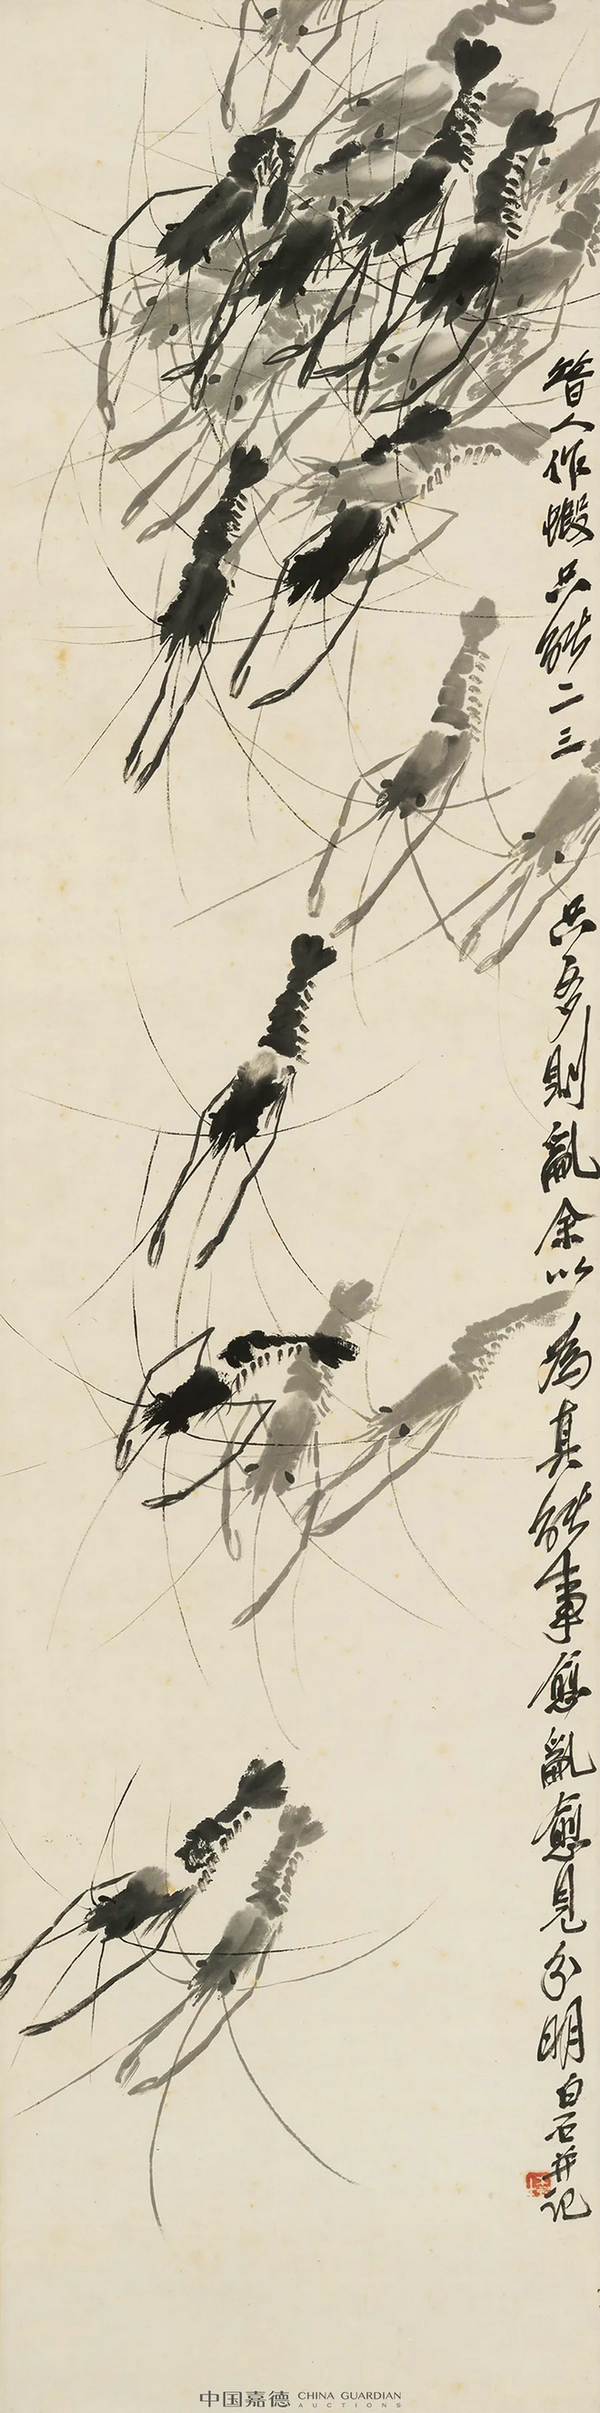 昔人作蝦只能二三只多則亂余以為真能事愈亂愈見分明白石并記
中国嘉德 CHINA GUARDIAN
AUCTIONS